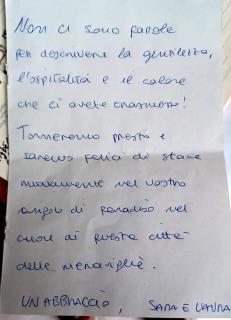 Non ci sono parole
per descrivere la gentilezza,
l'ospitalità e il calore
che ci avete trasmesso!
Torneremo presto e
saremo felici di stare
nuovamente nel vostro
angolo di paradiso nel
cuore di questa città
delle meraviglie.
UN ABBRACCIO, SARA E LAURA